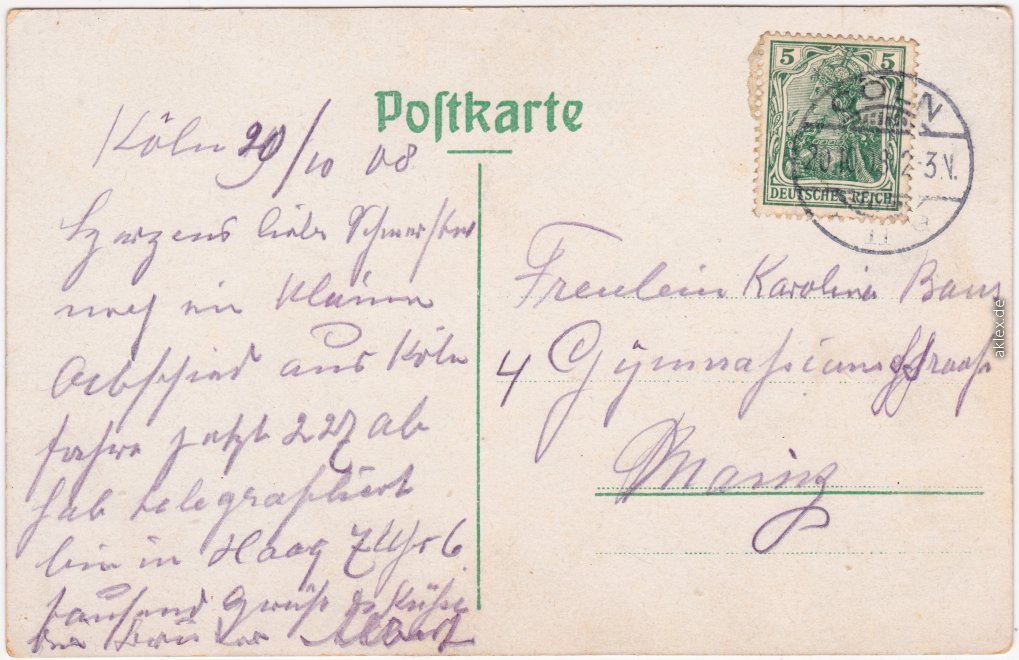 Postkarte
5 5
DEUTSCHES REICH
CÖLN
20.10.08. 2-3N.
Köln 20/10 08
Herzens liebe Schwester
noch ein kleinen
Abschied aus Köln
fahre jetzt 2 27 ab
hab telegraphiert
bin in Haag 7 Uhr 6
tausend Grüße & Küsse
Bruder Albert
Freulein Karolina
4 Gymnasiumstrasse
Mainz
aklex.de